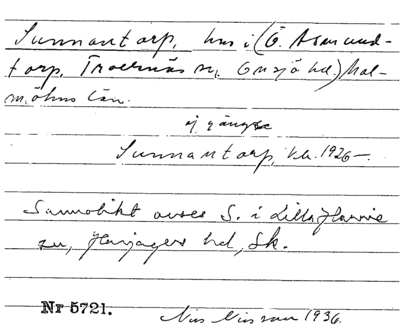 Sunnantorp, hus i (Ö. Asmund-
torp, Trollenäs sn, Onsjö hd.) Mal-
möhus län.
ej gängse
Sunnantorp, kb. 1926–.
Sannolikt avses S. i Lilla Harrie
sn, Harjagers hd, Sk.
Nr 5721.
Nils Nilsson 1936.